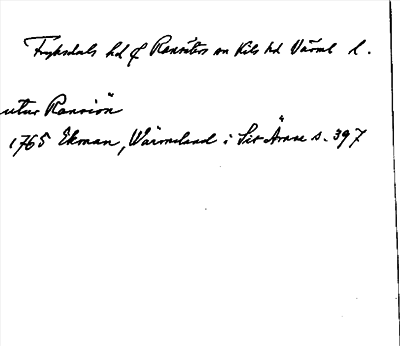 Fryksdals hd o Ransäters sn Kils hd Värml l.
utur Ransiön
1765 Ekman, Wärmeland i Sit Ämne s. 397